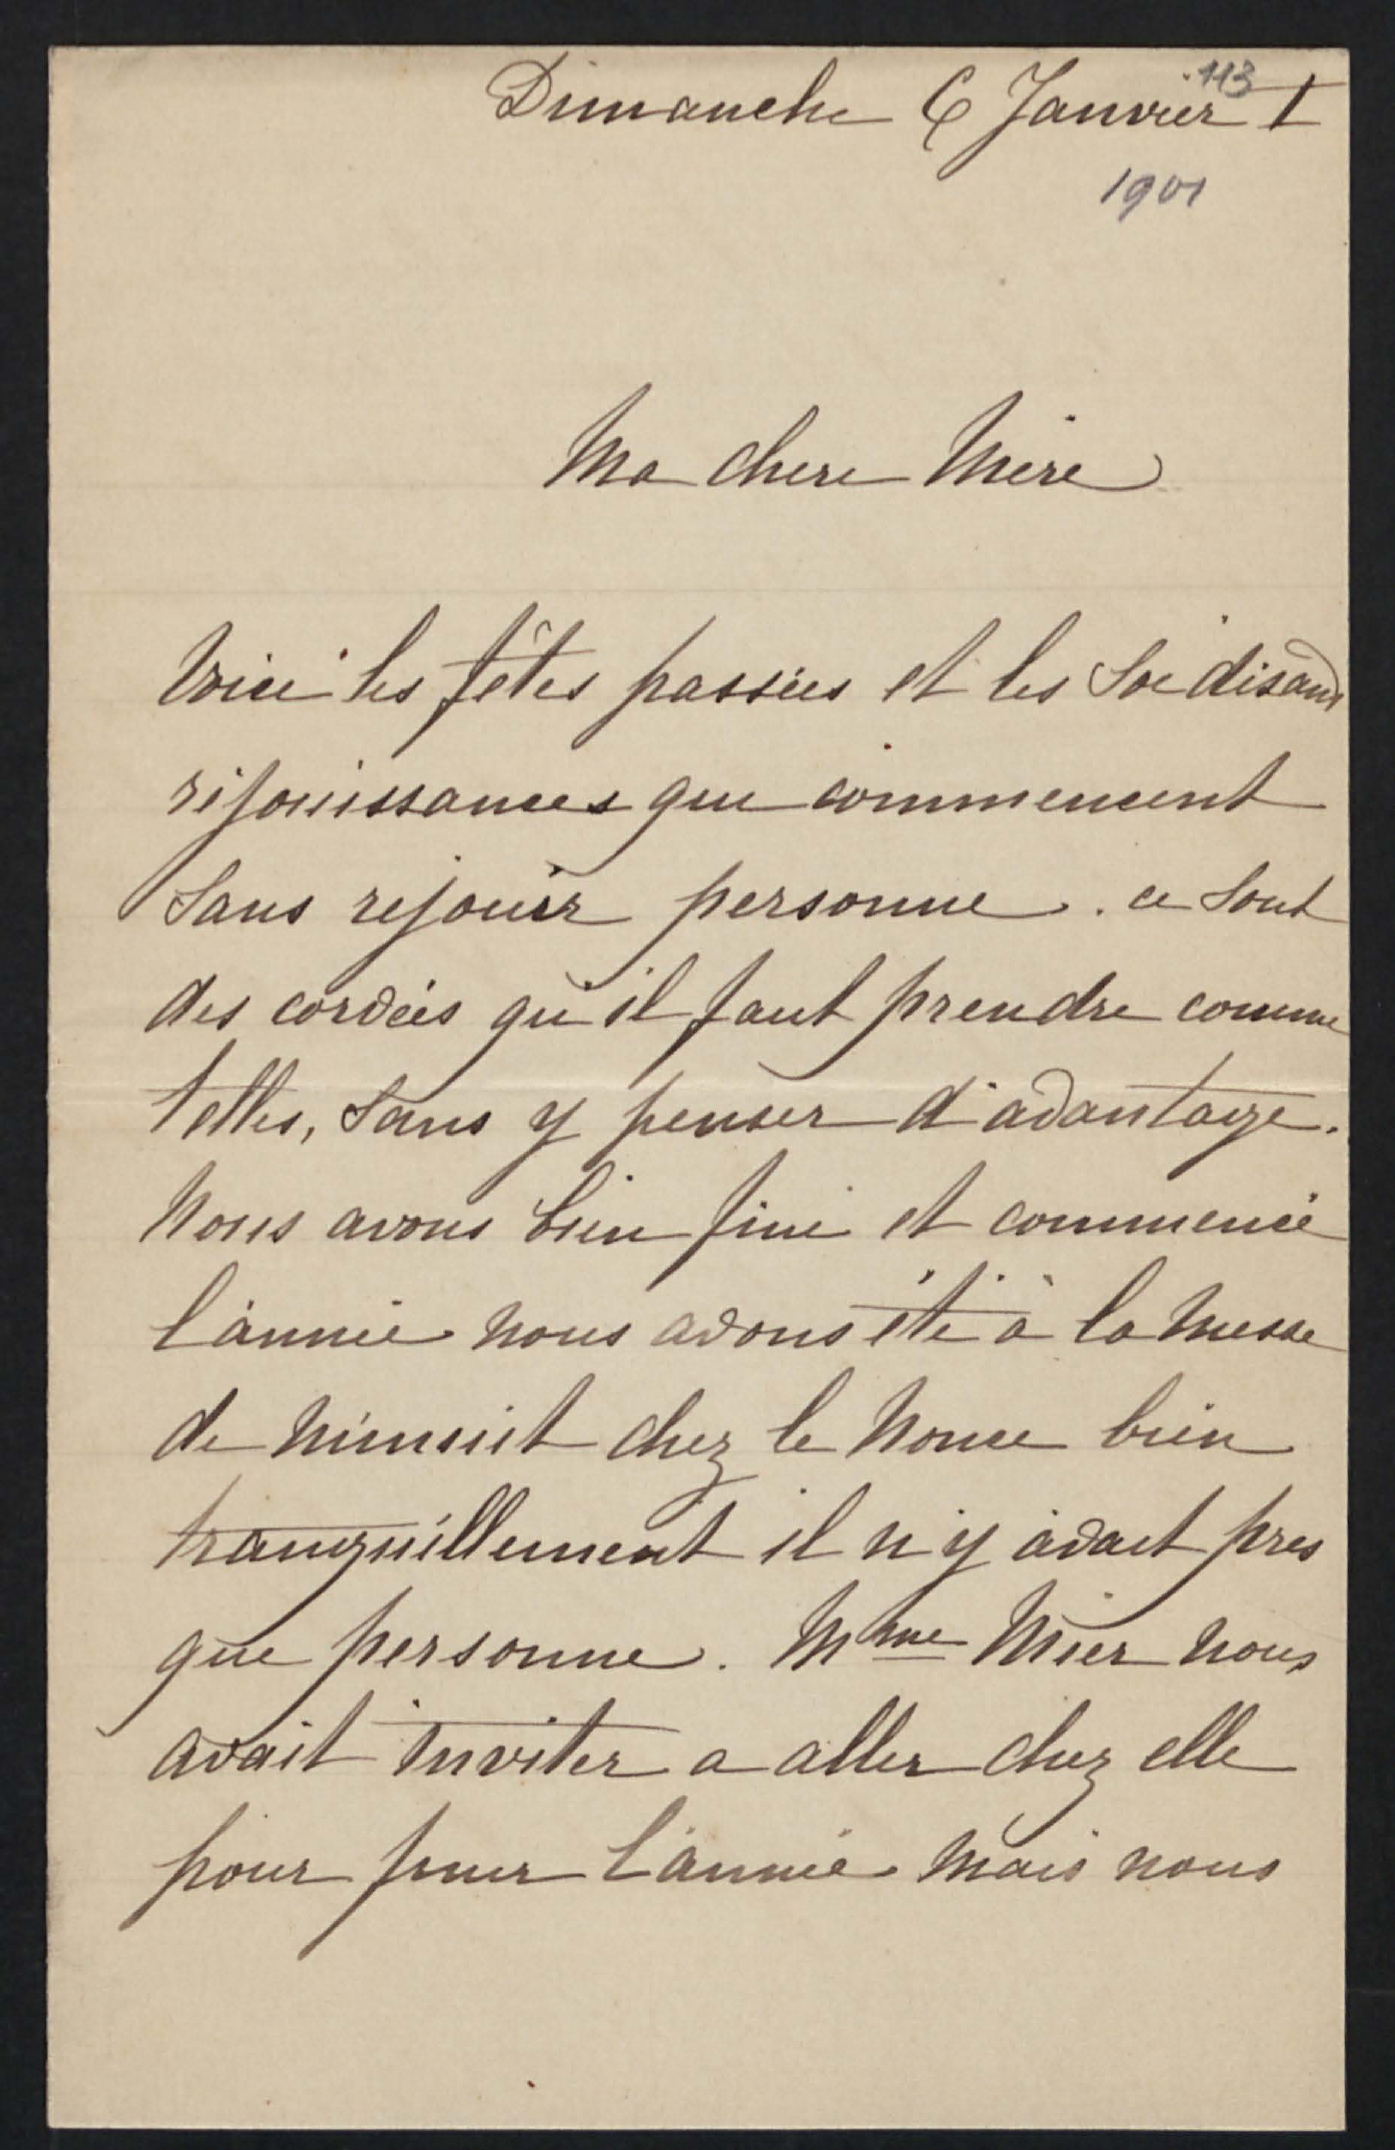 113
Dimanche 6 Janvier 1
1901
Ma chere Mère
Voici les fêtes passées et les Soi disant
réjouissances que commencent
Sans rejouir personne. ce Sont
des corvées qu'il faut prendre comme
telles, Sans y penser d'avantage.
Nous avons bien fini et commencé
l'année nous avons été à la Messe
de Minuit chez le Nonce bien
tranquillement il n'y avait pres
que personne. Mme Mier nous
avait inviter a aller chez elle
pour finir l'année Mais nous